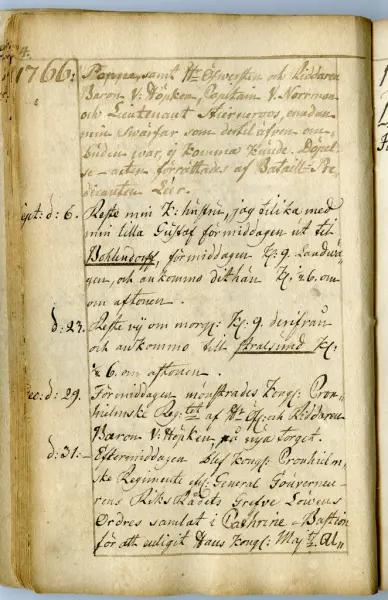 4.
1766: Pappa, samt Hr Öfwersten och Riddaren
Baron V: Höpken, Capitain V. Norrman
och Lieutenant Stiernroos, enadan
min Swärfar som dertil äfven om-
buden war, ej komma kunde. Döpel-
se-acten förrättades af Bataill: Pre-
dicanten Leir.
Sept: d: 6. Reste min K: hustru, jag tilika med
min lilla Gustaf förmiddagen ut til
Bohlendorff, förmiddagen Kl: 9. Landwä-
gen, och ankommo dithän Kl. ½ 6. om
om aftonen.
d: 23. Reste wij om morg: Kl: 9. derifrån
och ankommo till Stralsund Kl:
½ 6. om aftonen.
d: 29. Förmiddagen mönstrades Kongl: Cron-
hielmske Reg:tet af Hr Öf: och Riddaren
Baron V: Höpken, på nya torget.
d: 31:- Eftermiddagen blef Kongl: Cronhielm-
ske Regimente efter General Gouverneu-
rens Riks Rådets Grefve Löwens
Ordres samlat i Cathrine-Bastion
för att enligit Hans Kongl: Maj:tz Al„